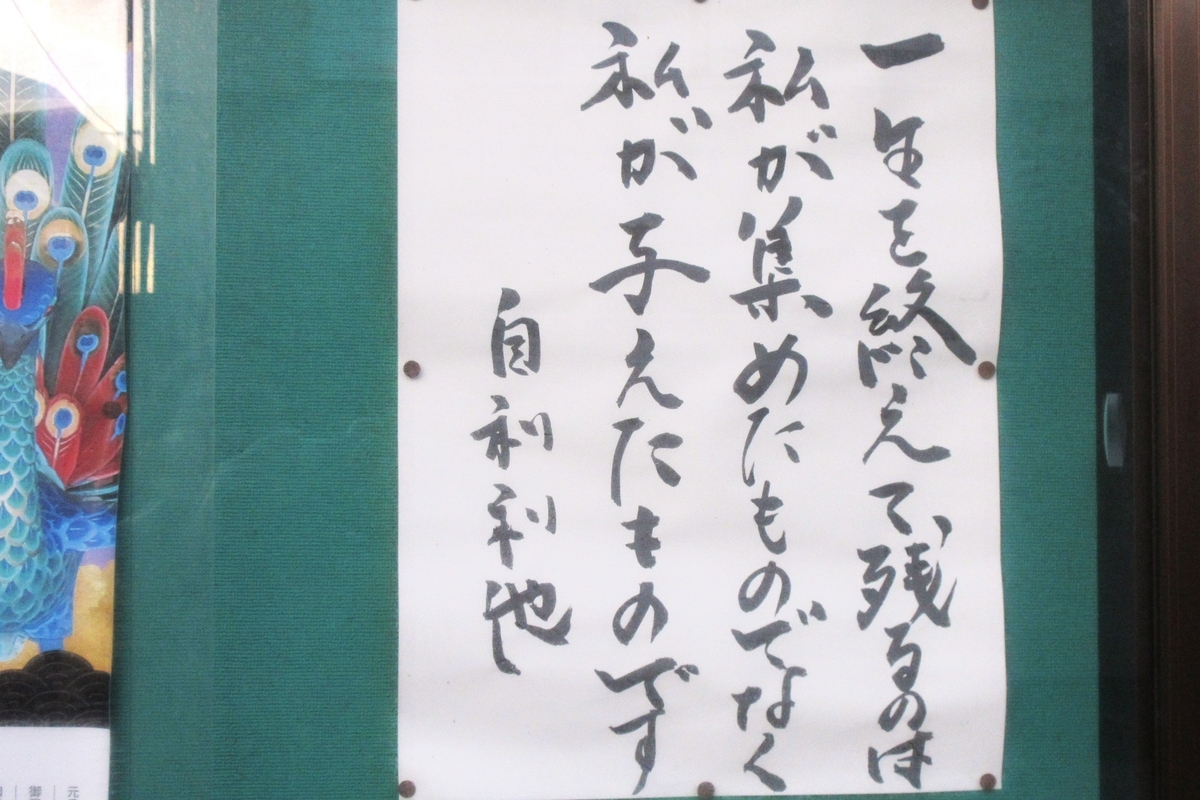 一生を終えて、残るのは
私が集めたものでなく
私が与えたものです
自利利他